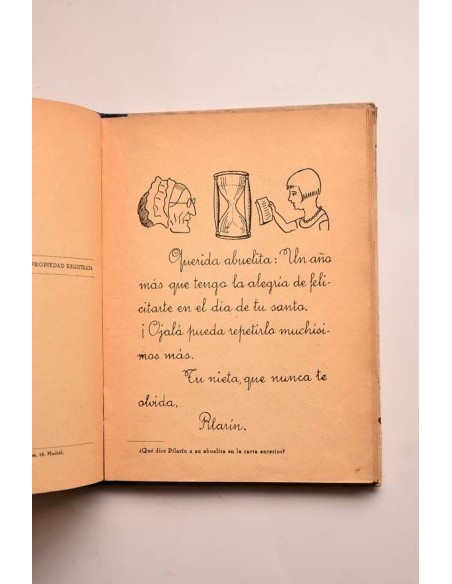 PROPIEDAD REGISTRADA
Querida abuelita: Un año
más que tengo la alegría de feli-
citarte en el día de tu santo.
¡Ojalá pueda repetirlo muchísi-
mos más.
Tu nieta, que nunca te
olvida,
Pilarín.
¿Qué dice Pilarín a su abuelita en la carta anterior?
Madrid.